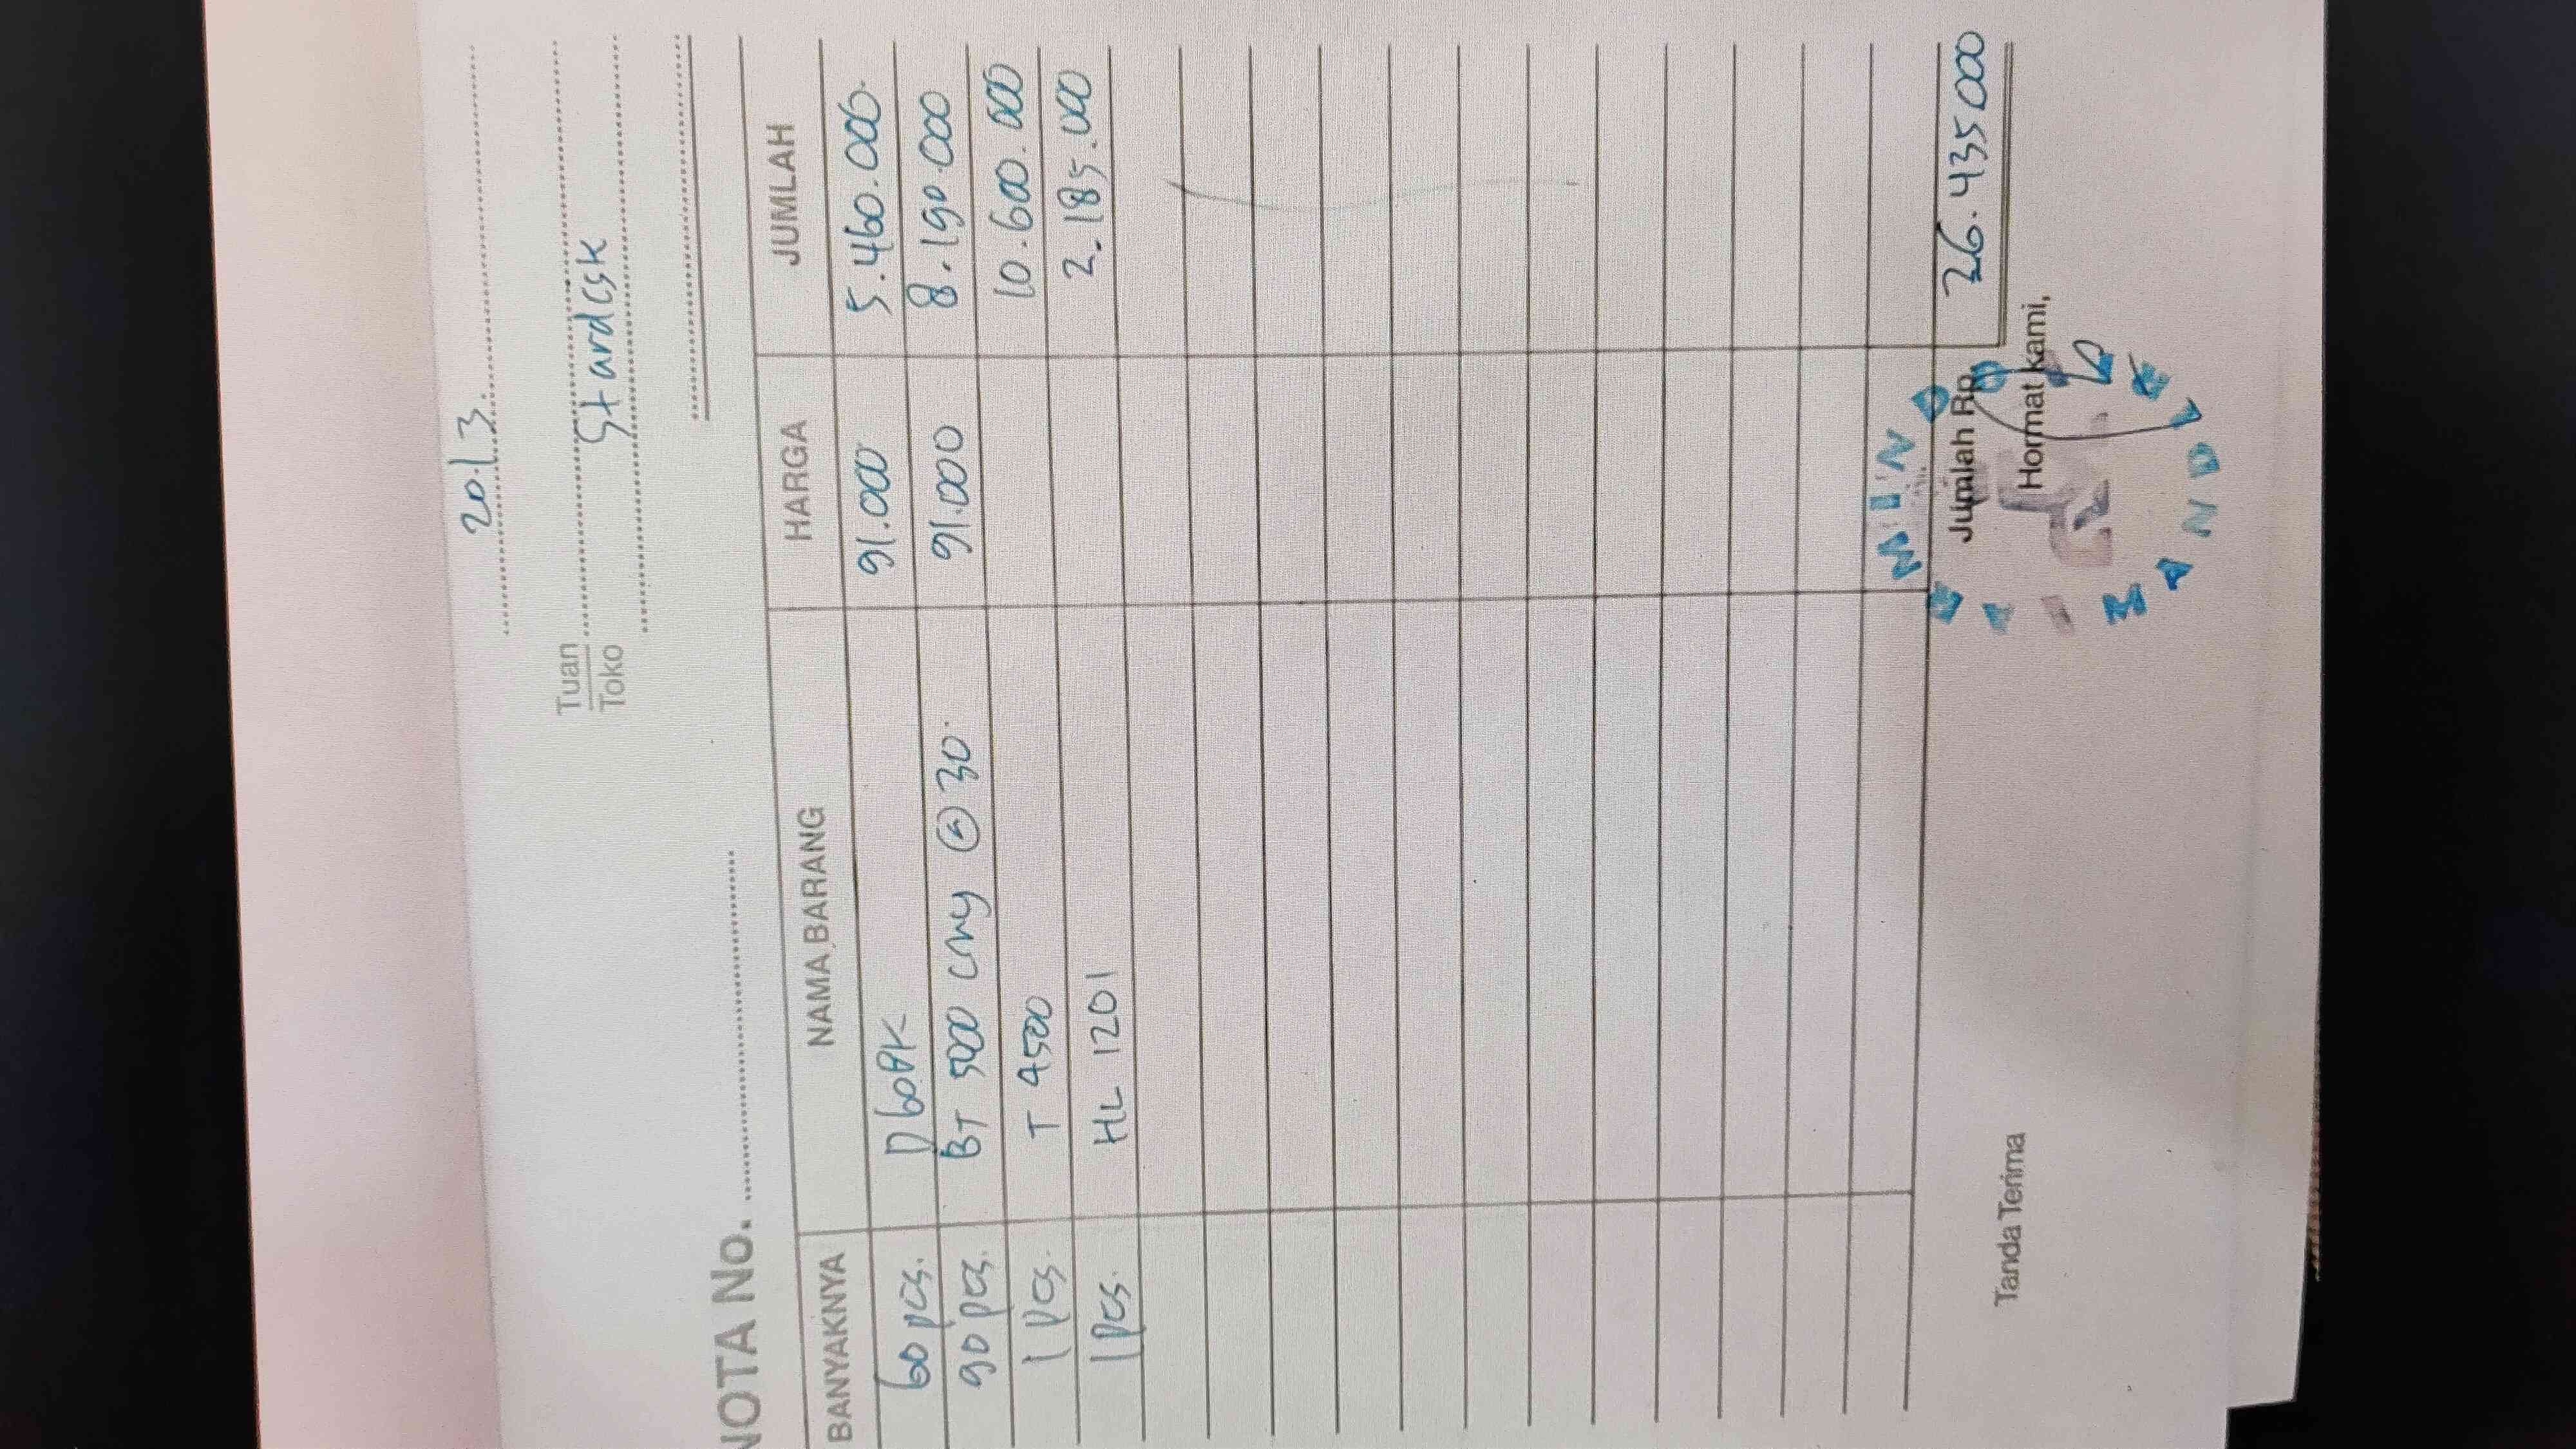 20/3
Tuan
Toko
Stardesk
NOTA No.
BANYAKNYA NAMA BARANG HARGA JUMLAH
60 pcs. D60PK 91.000 5.460.000.
90 pcs. BT 500 @ 30. 91.000 8.190.000
1 pcs. T 4500 10.600.000
1 pcs. HL 1201 2.185.000
Jumlah Rp. 26.435.000
Tanda Terima Hormat kami,